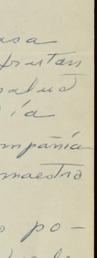 asa
frutan
salud
ía
mpañía
maestro
o po-